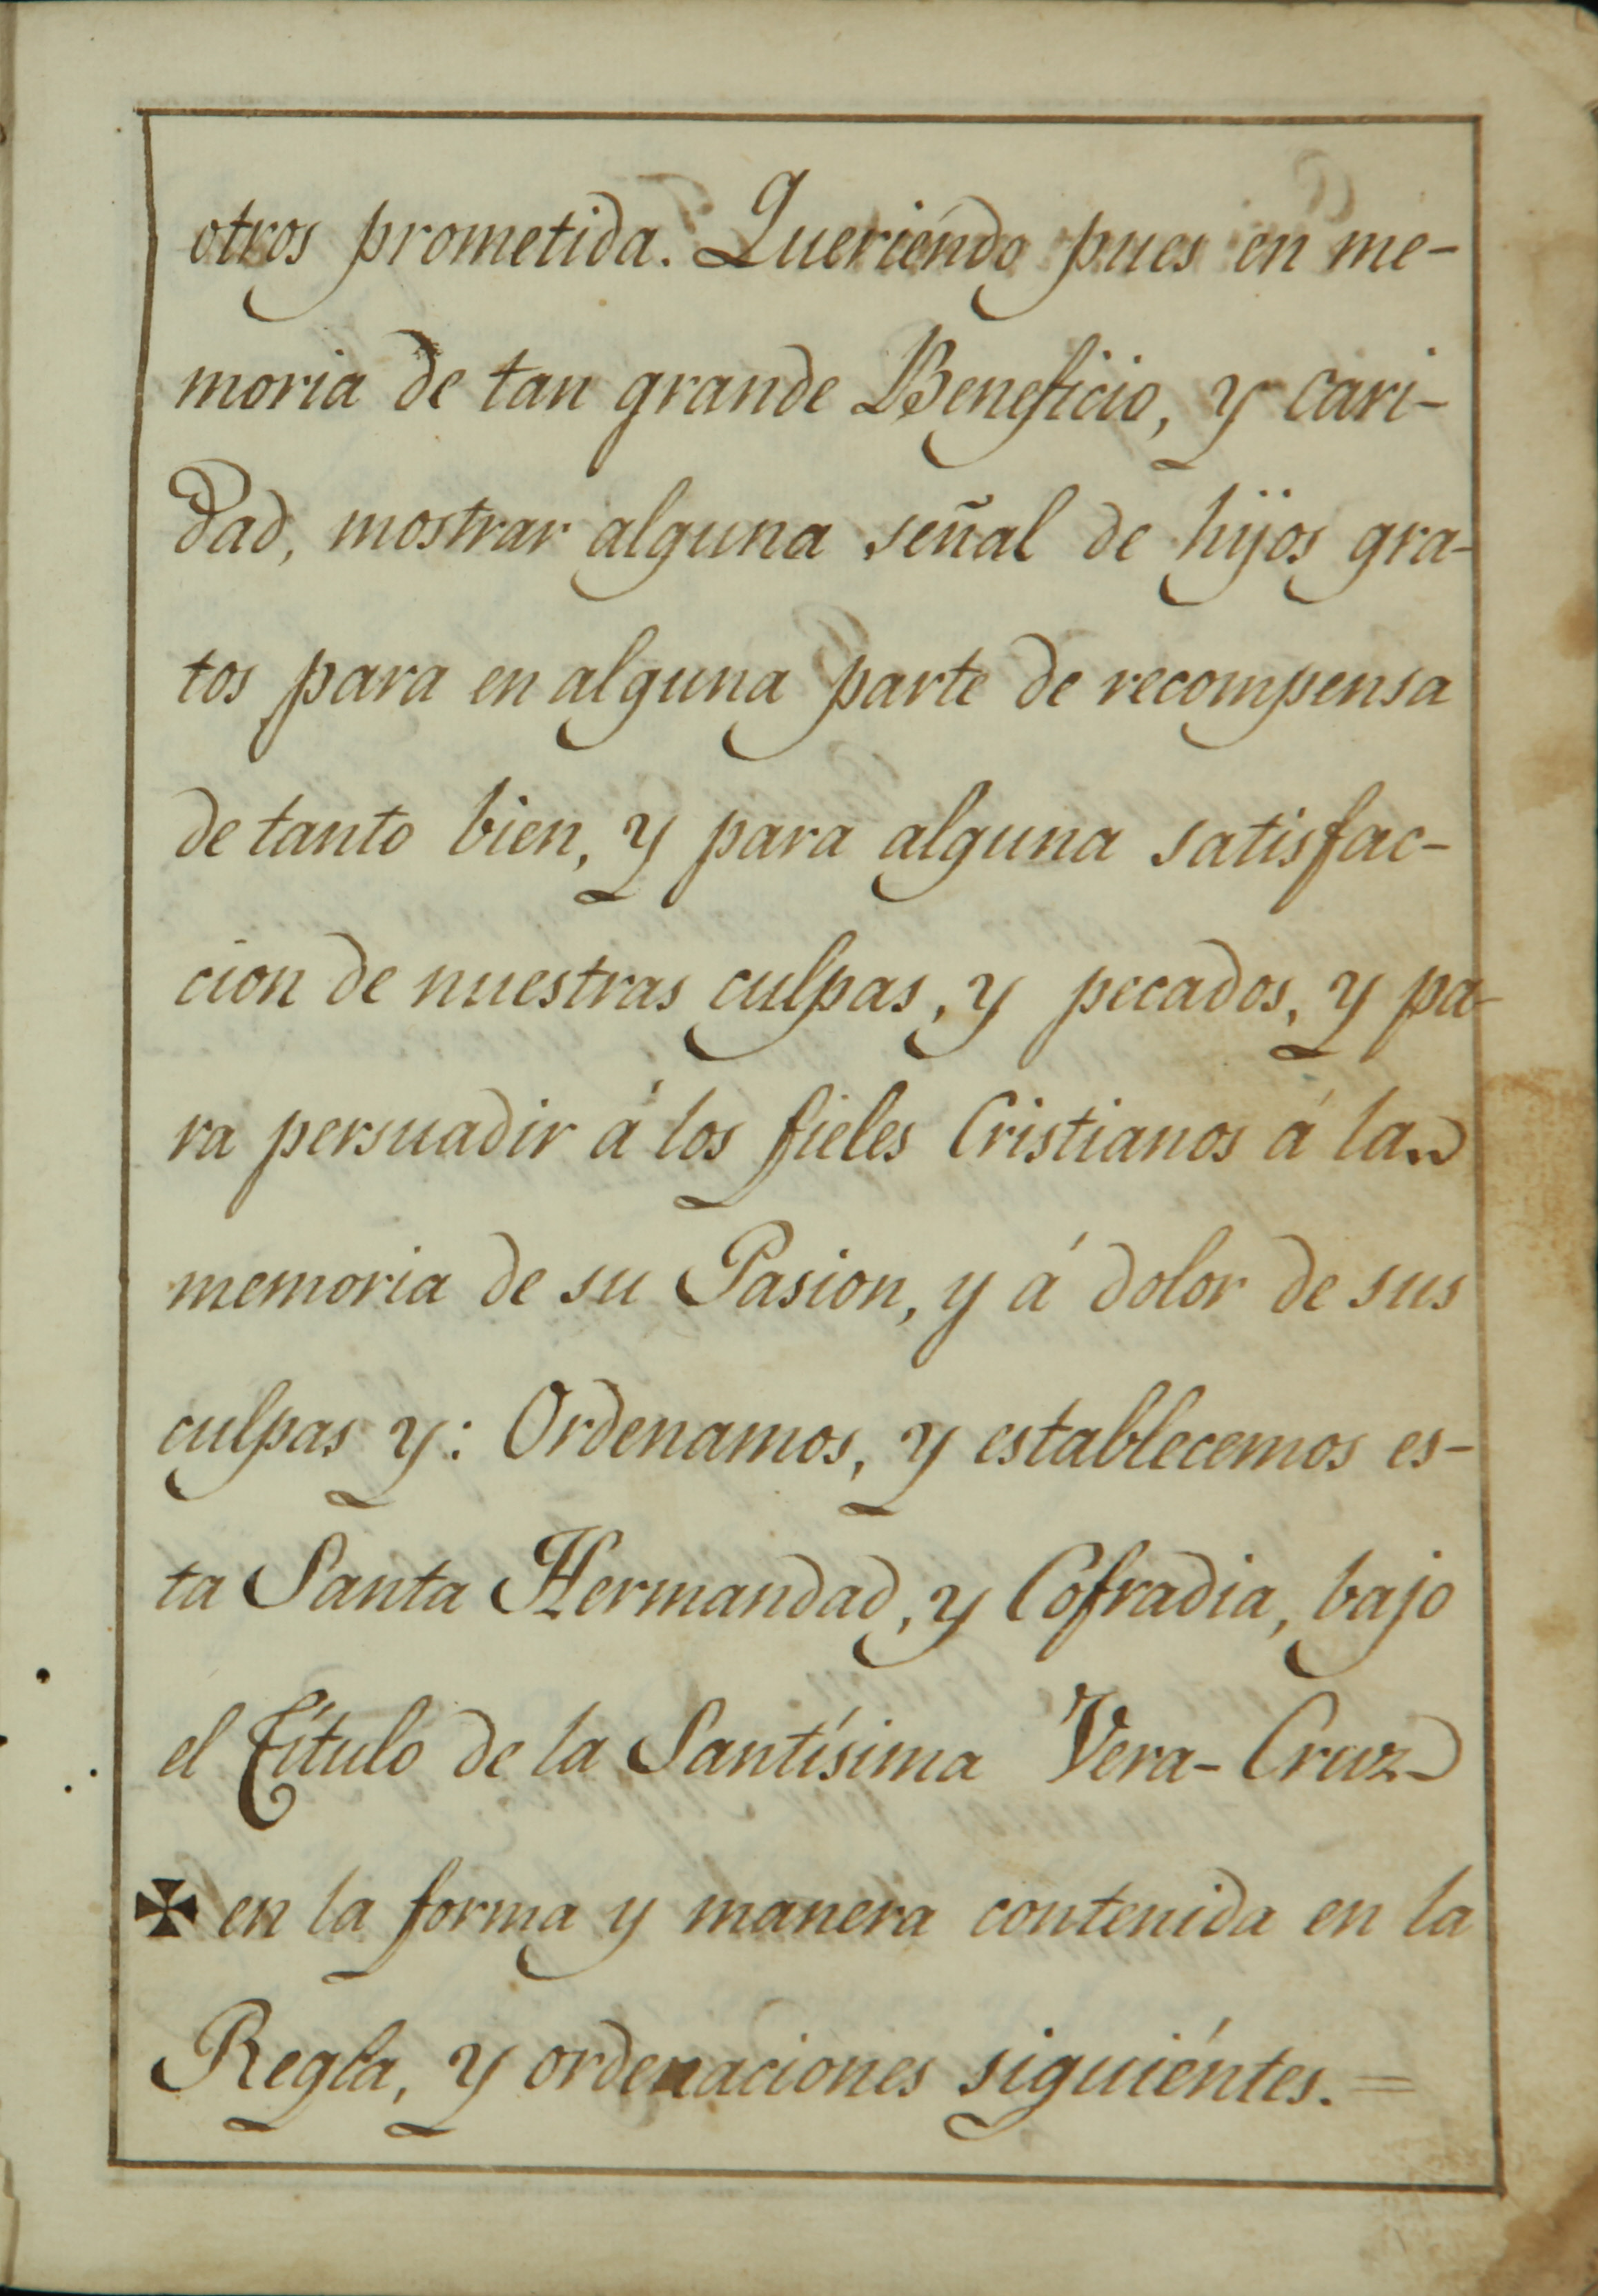 otros prometida. Queriéndo pues en me-
moria de tan grande Beneficio, y cari-
dad, mostrar alguna señal de hijos gra-
tos para en alguna parte de recompensa
de tanto bien, y para alguna satisfac-
cion de nuestras culpas, y pecados, y pa-
ra persuadir á los fieles Cristianos á la
memoria de su Pasion, y á dolor de sus
culpas y: Ordenamos, y establecemos es-
ta Santa Hermandad, y Cofradia, bajo
el Título de la Santísima Vera-Cruz
✠ en la forma y manera contenida en la
Regla, y ordenaciones siguiéntes. =